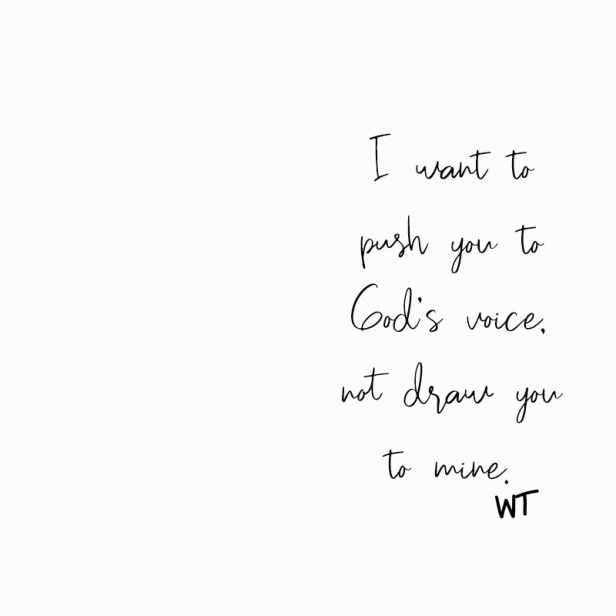 I want to
push you to
God's voice,
not draw you
to mine.
WT